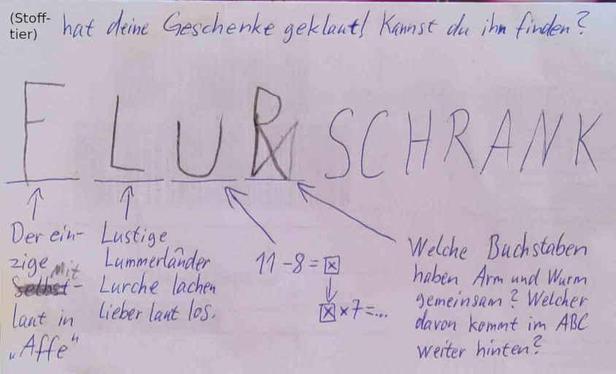 (Stoff-
tier) hat deine Geschenke geklaut! Kannst du ihn finden?
FLURSCHRANK
Der ein-
zige Mit-
laut in
„Affe“
Lustige
Lummerländer
Lurche lachen
lieber laut los.
11-8=x
x×7=...
Welche Buchstaben
haben Arm und Wurm
gemeinsam? Welcher
davon kommt im ABC
weiter hinten?